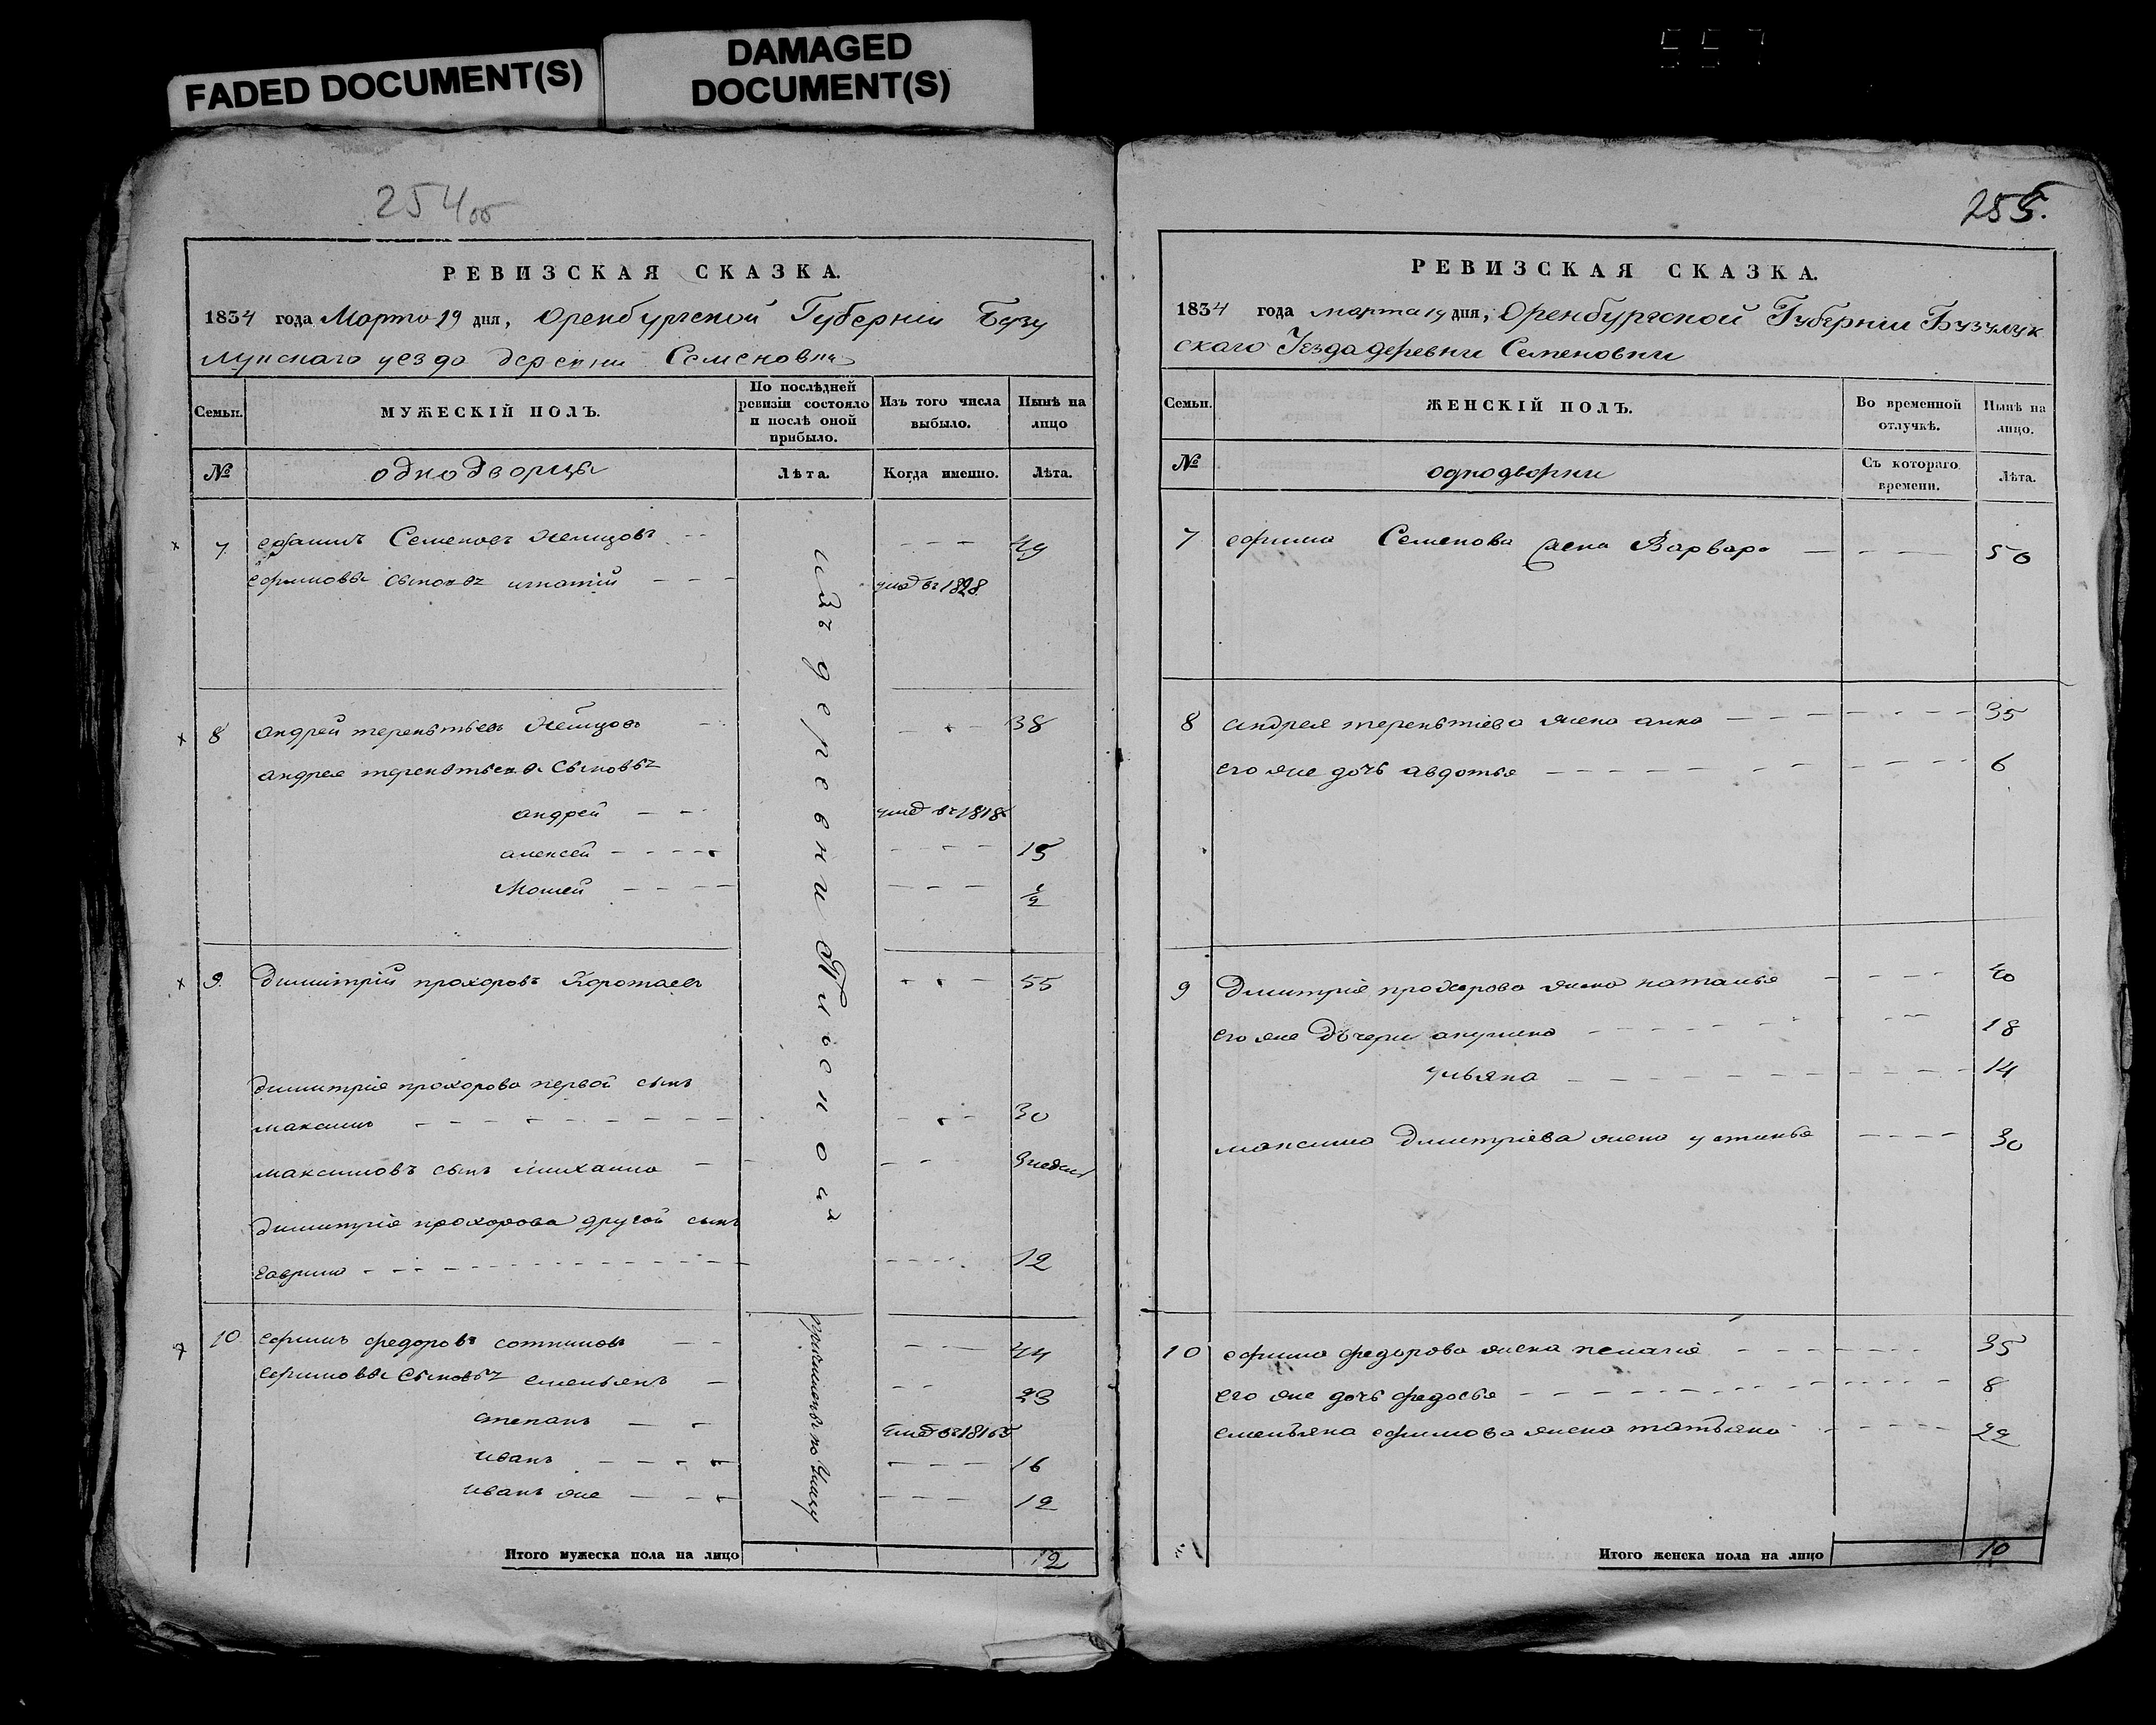 FADED DOCUMENT(S)
DAMAGED
DOCUMENT(S)
557
254 об
РЕВИЗСКАЯ СКАЗКА.
1834 года Марта 19 дня, Оренбургской Губернии Бузу
лукскаго уезда деревни Семеновки
Семьи.
МУЖЕСКІЙ ПОЛЪ.
По послѣдней ревизіи состояло и послѣ оной прибыло.
Изъ того числа выбыло.
Нынѣ на лицо
№
однодворцы
Лѣта.
Когда именно.
Лѣта.
7 Семеновъ Немцовъ - - - - - 49
ефимовы сыновъ игнатий - - - умод въ 1828
8 андрей терентьевъ Немцовъ - - - 38
андрея терентьева сыновъ
андрей - - умод въ 1818
алексей - - - - - - - - 15
Мосей - - - - - - - 1/2
9. Димитрий прохоровъ Коротаевъ - - - 55
димитрия прохорова первой сынъ
максимъ - - - - - - - - - - - 30
максимовъ сынъ михаила - - - - 3 недели
димитрия прохорова другой сынъ
гаврила - - - - - - - - - - - - 12
10 ефимъ федоровъ - - - - - 44
ефимовы сыновъ емельянъ - - - 23
степанъ - - умод въ 1816
иванъ - - - - - - - - 16
иванъ же - - - - - - 12
изъ деревни
по указу
Итого мужеска пола на лицо 12
255.
РЕВИЗСКАЯ СКАЗКА.
1834 года марта 19 дня, Оренбургской Губернии Бузулук
скаго Уезда деревни Семеновки
Семьи.
ЖЕНСКІЙ ПОЛЪ.
Во временной отлучкѣ.
Нынѣ на лицо.
№
однодворки
Съ котораго времени.
Лѣта.
7 ефима Семенова жена Варвара - - - - 50
8 андрея терентиева жена анна - - - - - - - 35
его же дочь авдотья - - - - - - - - - 6
9 Димитрия прохорова жена наталья - - - - 40
его же дочери акулина - - - - - - - 18
ульяна - - - - - - - - - 14
максима Димитриева жена устинья - - - - 30
10 ефима федорова жена пелагия - - - - - - - 35
его же дочь федосья - - - - - - - - - 8
емельяна ефимова жена татьяна - - - - 22
Итого женска пола на лицо 10